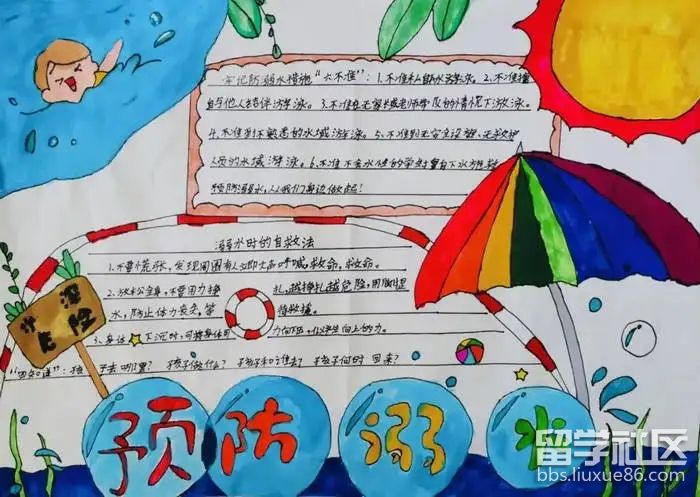 牢记防溺水措施“六不准”：1.不准私自下水游泳。2.不准擅
自与他人结伴游泳。3.不准在无家长或老师带队的情况下游泳。
4.不准到不熟悉的水域游泳。5.不准到无安全设施、无救护
人员的水域游泳。6.不准不会水性的学生擅自下水施救
预防溺水，从我们身边做起！
溺水时的自救法
1.不要慌张，发现周围有人立即大声呼喊救命，救命。
2.放松全身，不要用力挣扎，越挣扎越危险，用脚踢
水，防止体力丧失，等待救援。
3.身体下沉时，可将身体 力向下
“四知道”：孩子去哪里？孩子做什么？孩子和谁去？孩子何时回来？
水深
危险
预防溺水
留学社区
bbs.liuxue86.com